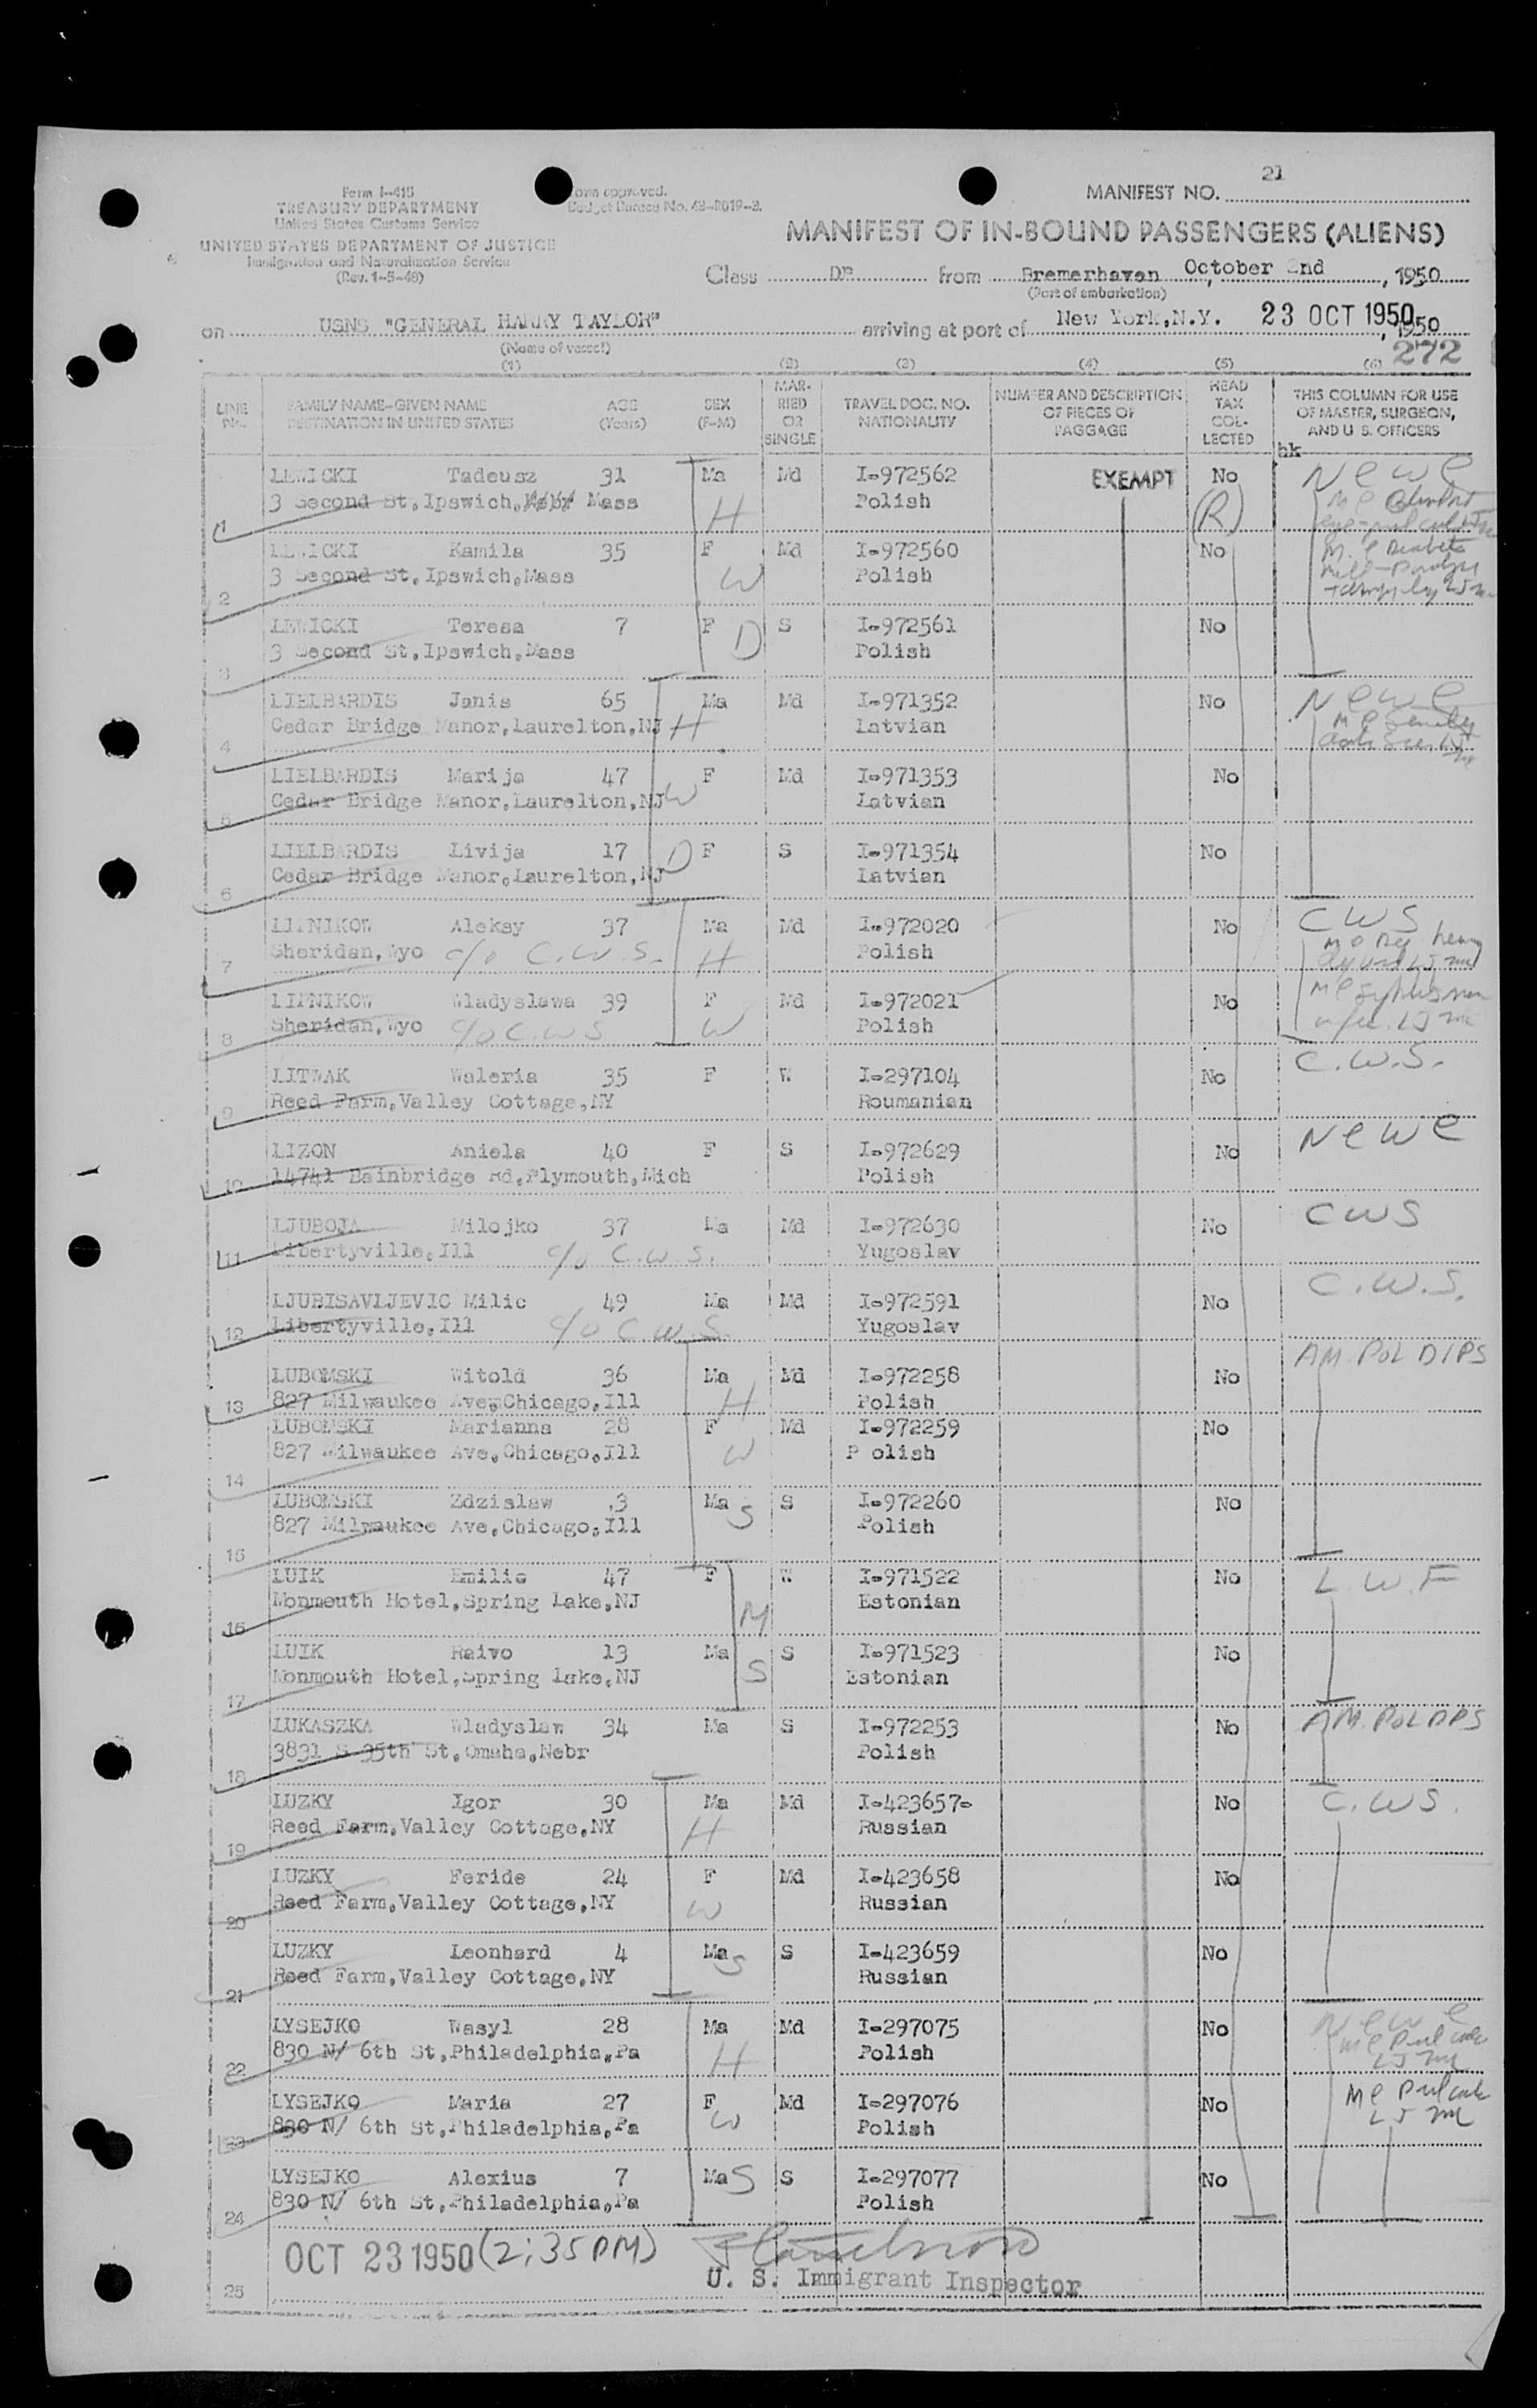 21
Form I-415
TREASURY DEPARTMENT
United States Customs Service
UNITED STATES DEPARTMENT OF JUSTICE
Immigration and Naturalization Service
(Rev. 1-5-48)
Form approved.
Budget Bureau No. 43-R019-3.
MANIFEST NO.
MANIFEST OF IN-BOUND PASSENGERS (ALIENS)
Class DP from Bremerhaven, October 2nd, 1950
(Port of embarkation)
on USNS "GENERAL HARRY TAYLOR" arriving at port of New York,N.Y. 23 OCT 1950, 1950
(Name of vessel)
272
(1) (2) (3) (4) (5) (6)
LINE No. FAMILY NAME-GIVEN NAME DESTINATION IN UNITED STATES AGE (Years) SEX (F-M) MARRIED OR SINGLE TRAVEL DOC. NO. NATIONALITY NUMBER AND DESCRIPTION OF PIECES OF BAGGAGE HEAD TAX COLLECTED THIS COLUMN FOR USE OF MASTER, SURGEON, AND U. S. OFFICERS
hk
LEWICKI Tadeusz 31 Ma Md I-972562 EXEMPT No NCWC
1 3 Second St,Ipswich, Mass H Polish (R)
LEWICKI Kamila 35 F Md I-972560 No
2 3 Second St,Ipswich,Mass W Polish
LEWICKI Teresa 7 F D S I-972561 No
3 3 Second St,Ipswich,Mass Polish
LIELBARDIS Janis 65 Ma Md I-971352 No NCWC
4 Cedar Bridge Manor,Laurelton,NJ H Latvian
LIELBARDIS Marija 47 F Md I-971353 No
5 Cedar Bridge Manor,Laurelton,NJ W Latvian
LIELBARDIS Livija 17 D F S I-971354 No
6 Cedar Bridge Manor,Laurelton,NJ Latvian
LINNIKOW Aleksy 37 Ma Md I-972020 No CWS
7 Sheridan,Wyo c/o C.W.S. H Polish
LINNIKOW Wladyslawa 39 F Md I-972021 No
8 Sheridan,Wyo c/o C.W.S W Polish
LITWAK Waleria 35 F W I-297104 No C.W.S.
9 Reed Farm,Valley Cottage,NY Roumanian
LIZON Aniela 40 F S I-972629 No NCWC
10 14741 Bainbridge Rd,Plymouth,Mich Polish
LJUBOJA Milojko 37 Ma Md I-972630 No CWS
11 Libertyville,Ill c/o C.W.S. Yugoslav
LJUBISAVLJEVIC Milic 49 Ma Md I-972591 No C.W.S.
12 Libertyville,Ill c/o C.W.S. Yugoslav
LUBOMSKI Witold 36 Ma Md I-972258 No AM. POL DIPS
13 827 Milwaukee Ave,Chicago,Ill H Polish
LUBOMSKI Marianna 28 F Md I-972259 No
14 827 Milwaukee Ave,Chicago,Ill W P olish
LUBOMSKI Zdzislaw 3 Ma S S I-972260 No
15 827 Milwaukee Ave,Chicago,Ill Polish
LUIK Emilie 47 F W I-971522 No L.W.F
16 Monmouth Hotel,Spring Lake,NJ M Estonian
LUIK Raivo 13 Ma S I-971523 No
17 Monmouth Hotel,Spring Lake,NJ S Estonian
LUKASZKA Wladyslaw 34 Ma S I-972253 No AM. POL DPS
18 3831 S 35th St,Omaha,Nebr Polish
LUZKY Igor 30 Ma Md I-423657- No C.WS.
19 Reed Farm,Valley Cottage,NY H Russian
LUZKY Feride 24 F Md I-423658 No
20 Reed Farm,Valley Cottage,NY W Russian
LUZKY Leonhard 4 Ma S S I-423659 No
21 Reed Farm,Valley Cottage,NY Russian
LYSEJKO Wasyl 28 Ma Md I-297075 No NCWC
22 830 N/ 6th St,Philadelphia,Pa H Polish
LYSEJKO Maria 27 F Md I-297076 No
23 830 N/ 6th St,Philadelphia,Pa W Polish
LYSEJKO Alexius 7 Ma S S I-297077 No
24 830 N/ 6th St,Philadelphia,Pa Polish
OCT 23 1950 (2:35 PM)
25 U. S. Immigrant Inspector